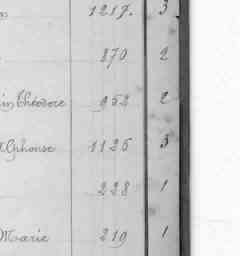 1217. 3
870 2
in Théodore 952 2
Alphonse 1126 3
228 1
Marie 219 1